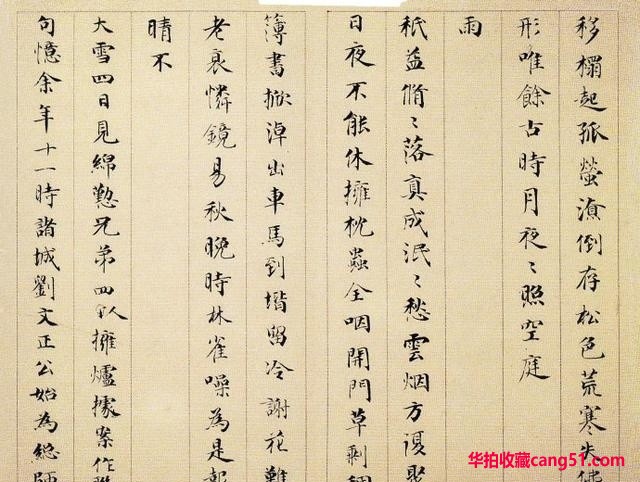 移榻起孤螢漁倒存松色荒寒失佛
形唯餘古時月夜〻照空庭
雨
秖益翛〻落真成泯〻愁雲烟方復聚
日夜不能休擁枕蟲全咽開門草剩
簿書掀淖出車馬到堦留冷謝花難
老衰憐鏡易秋晚時林雀噪為是報
晴不
大雪四日見綿懃兄弟四人擁爐據案作聯
句憶余年十一時諸城劉文正公始為總師
华拍收藏cang51.com